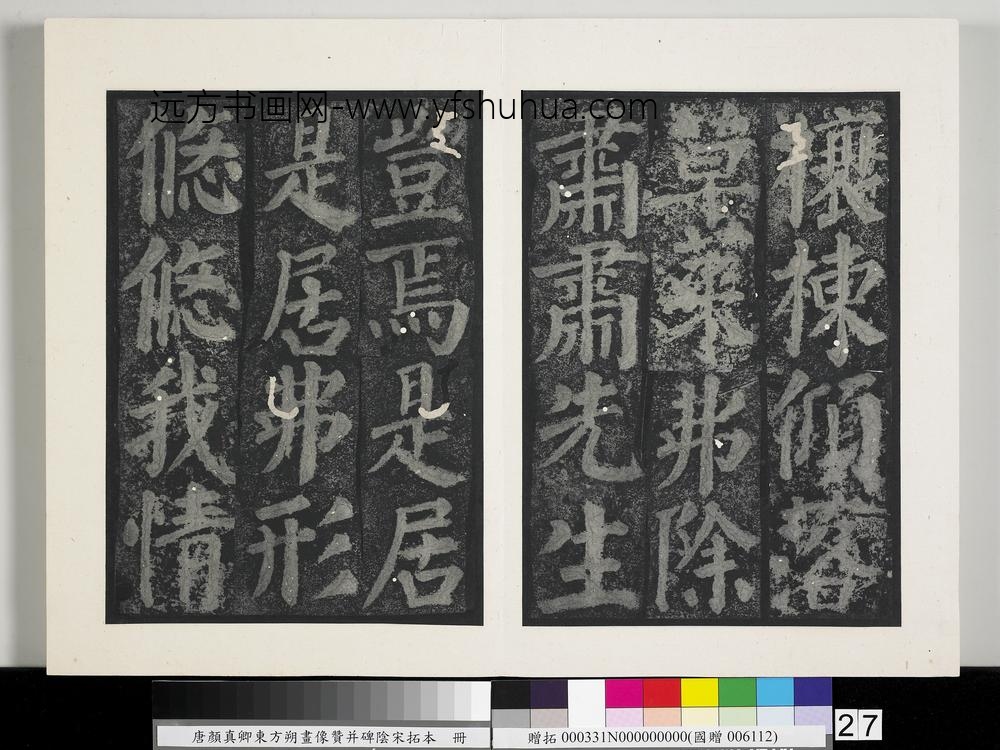 远方书画网-www.yfshuhua.com
榱棟傾落
草萊弗除
肅肅先生
豈焉是居
是居弗形
悠悠我情
唐顏真卿東方朔畫像贊并碑陰宋拓本 冊
贈拓 000331N000000000(國贈 006112)
27